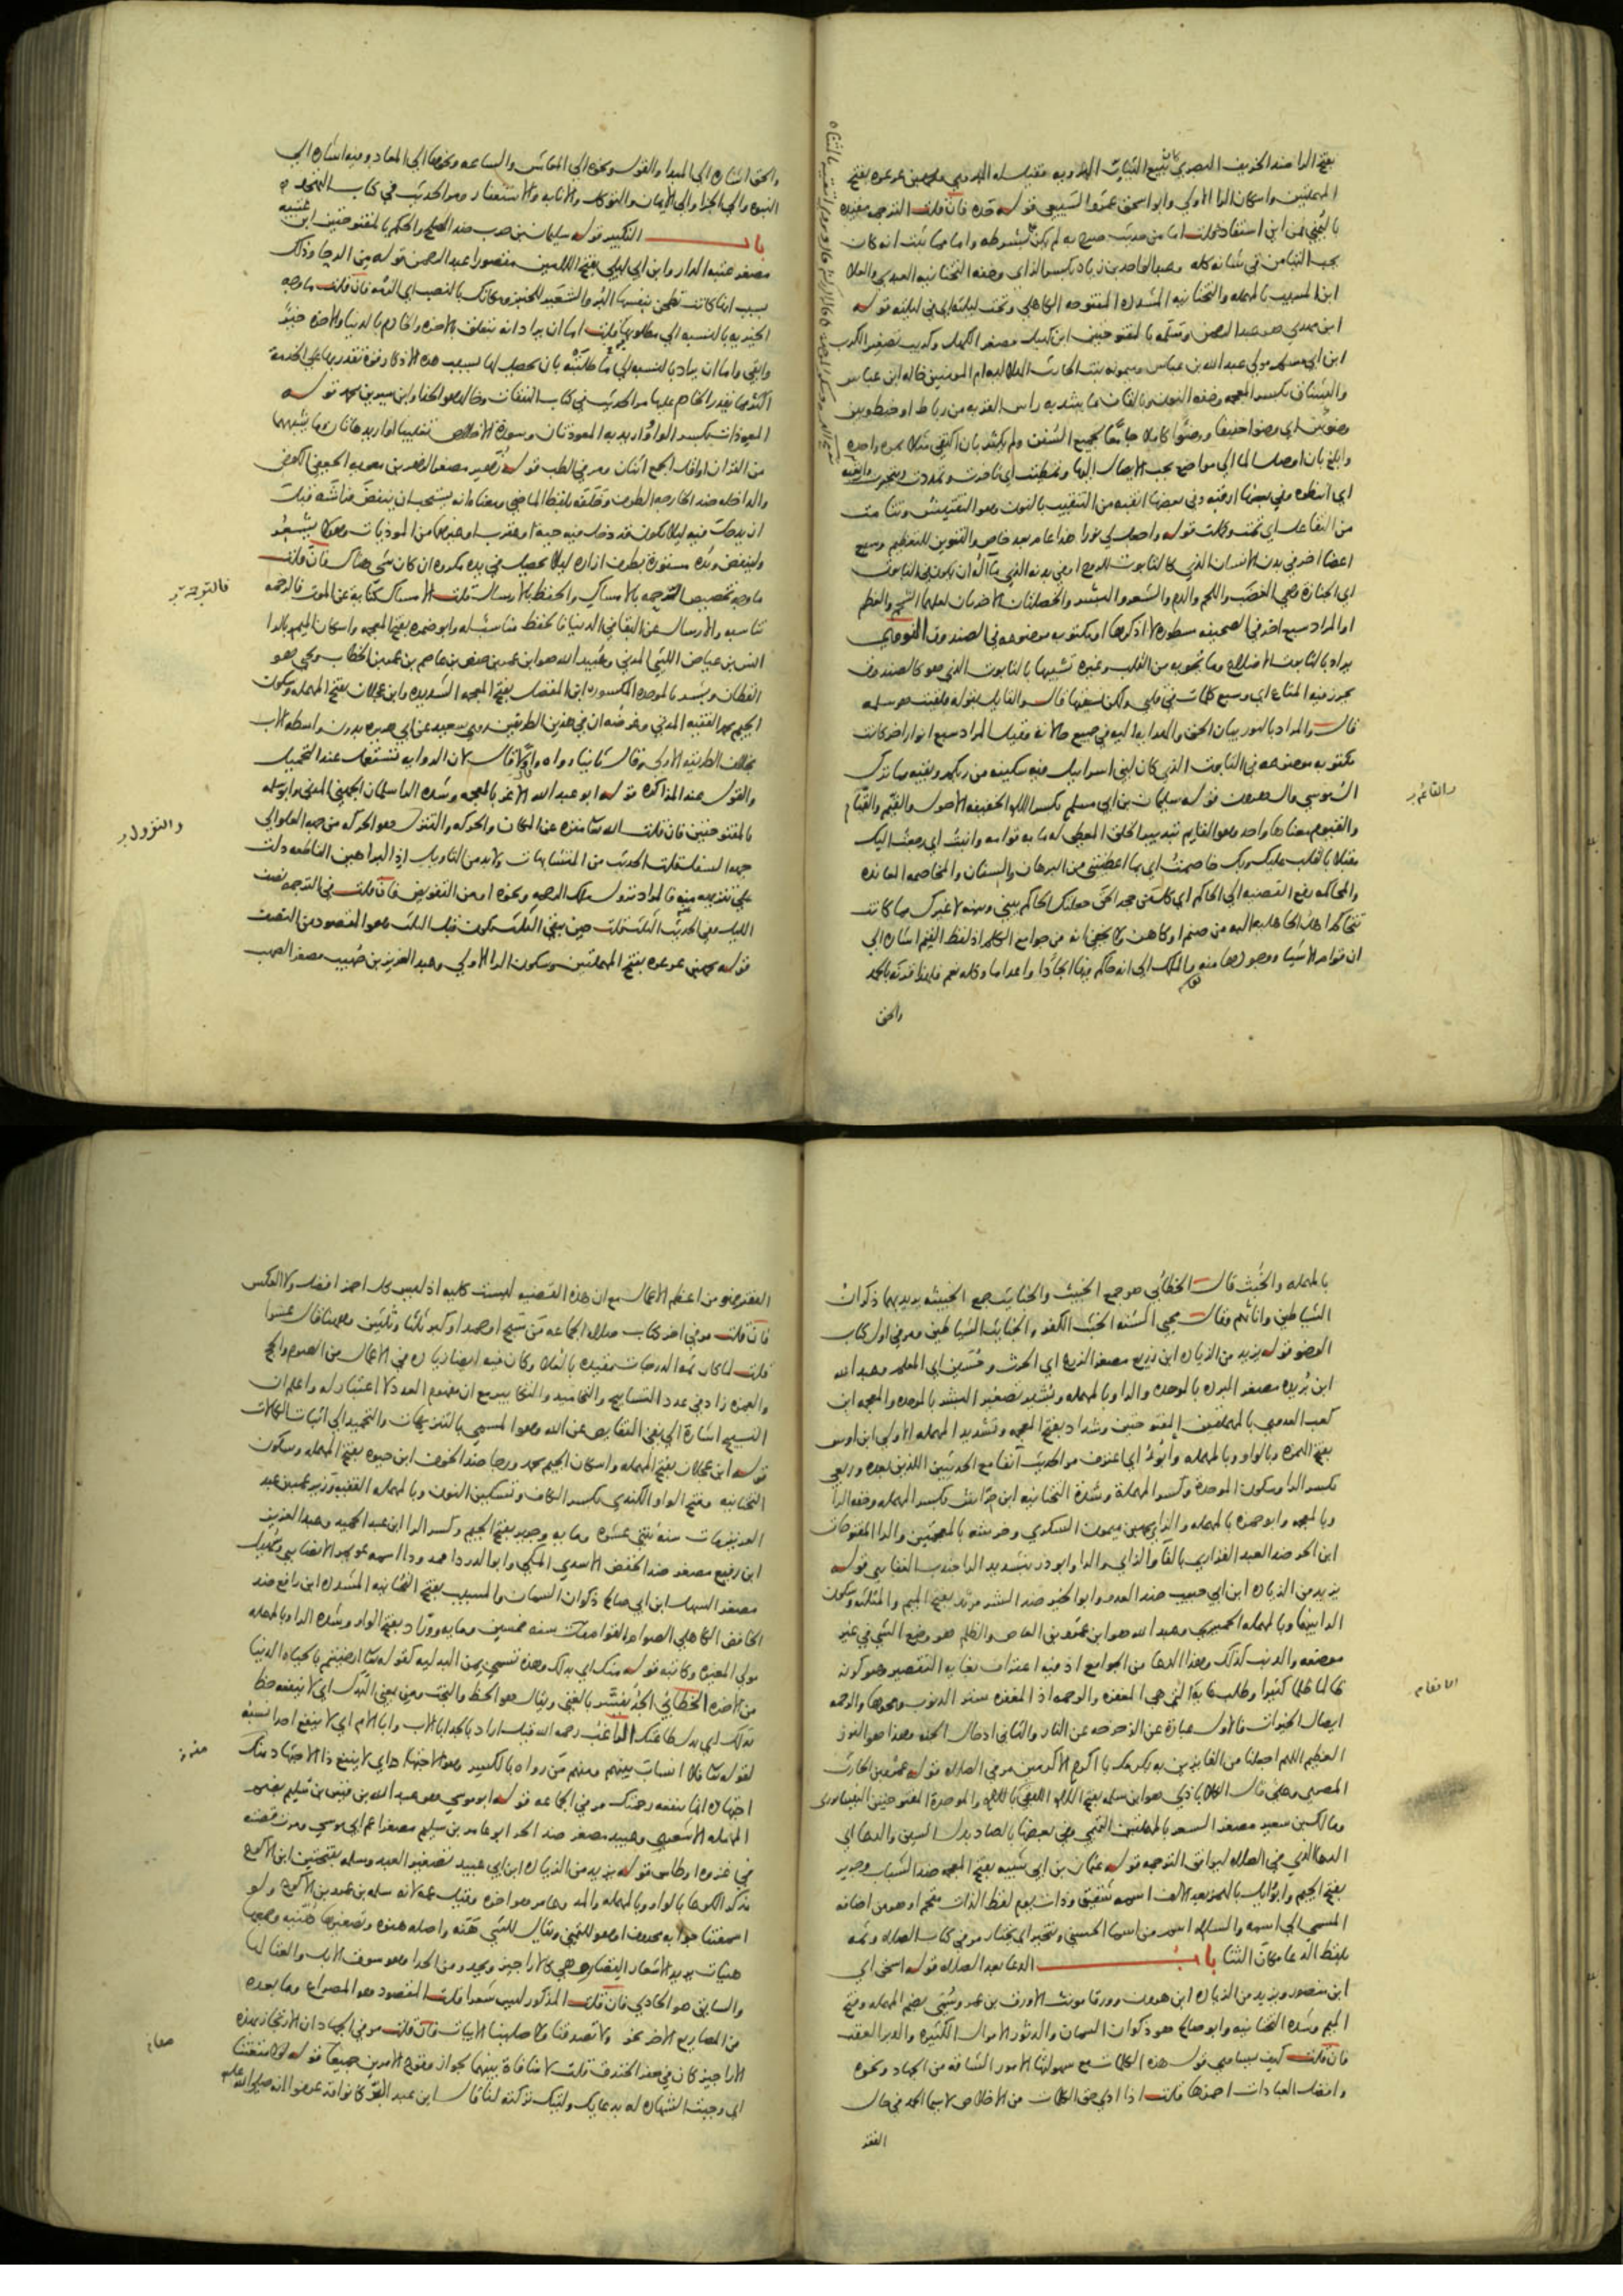 بفتح الرا ضد الخريف البصري
المهملتين واسكان الرا الاولى وابو اسحق عمرو السبيعي قوله فان قلت الترجمة مقيدة
باليمنى فمن اين استفاد قلت اما من حديث صريح به لم يكن بشرطه واما مما ثبت انه كان
يحب التيامن في شانه كله وعبد الواحد بن زياد بكسر الزاي وخفه التحتانيه العبدي والعلا
ابن المسيب بالمهمله والتحتانيه المشدده المفتوحه الكاهلي وتحت ليلته اي في ليلته قوله
ابن مهدي هو عبد الرحمن وسلمه بالمفتوحتين ابن كهيل مصغر الكهل وكريب تصغير الكرب
ابن ابي مسلم مولى عبد الله بن عباس وميمونه بنت الحارث الهلاليه ام المومنين خاله ابن عباس
والشناق بكسر المعجمه وخفه النون وبالقاف ما يشد به راس القربه من رباط او خيط وبين
وضوين اي وضوا خفيفا ووضوا كاملا جامعا لجميع السنن ولم يكثر بان اكتفى مثلا بمره واحده
وابلغ بان اوصل الما الى مواضع يجب الايصال اليها وتمطيت اي تاخرت وتمددت
اي انتظره وفي بعضها ارقبه وفي بعضها انقبه من التنقيب بالنون وهو التفتيش وتتامت
من التفاعل اي تمت وكملت قوله واجعل لي نورا هذا عام بعد خاص والتنوين للتعظيم وسبع
اعضا اخر في بدن الانسان الذي كالتابوت للروح او في بدنه الذي مآله ان يكون في التابوت
اي الجنازه وهي العصب واللحم والدم والشعر والبشر والخصلتان الاخريان لعلهما الشحم والعظم
او المراد سبع اخر في الصحيفه مسطوره لا اذكرها او مكتوبه موضوعه في الصندوق النووي
يراد بالتابوت الاضلاع وما تحويه من القلب وغيره تشبيها بالتابوت الذي هو كالصندوق
يحرز فيه المتاع اي وسبع كلمات في قلبي ولكن نسيتها قال والقايل بقوله فلقيت هو سلمه
قال والمراد بالنور بيان الحق والهدايه اليه في جميع حالاته وقيل المراد سبع انوار اخر كانت
مكتوبه موضوعه في التابوت الذي كان لبني اسراييل فيه سكينه من ربكم وبقيه مما ترك
ال موسى وال هرون قوله سليمان بن ابي مسلم بكسر اللام الخفيفه الاحول والقيم والقيام
والقيوم معناها واحد وهو القايم بتدبير الخلق المعطي له ما به قوامه وانبت اي رجعت اليك
مقبلا بالقلب عليك وبك خاصمت اي بما اعطيتني من البرهان والسنان والمخاصمه المعانده
والمحاكمه رفع القضيه الى الحاكم اي كل من جحد الحق جعلتك الحاكم بيني وبينه لا غيرك مما كانت
تتحاكم اهل الجاهليه اليه من صنم او كاهن ولا يخفى انه من جوامع الكلم اذ لفظ القيم اشاره الى
ان قوام الاشيا ووجودها منه والملك الى انه حاكم فيها ايجادا واعداما وكله نعم فلهذا قرنه بالحمد
والحق
والقائم
والحق اشاره الى المبدا والقول ونحوه الى المعاش والساعه ونحوها الى المعاد وفيه اشاره الى
النبوه والى الجزا والى الايمان والتوكل والانابه والاستغفار ومر الحديث في كتاب التهجد
باب التكبير قوله سليمان بن حرب ضد الصلح والحكم بالمفتوحتين ابن عتيبه
مصغر عتبه الدار وابن ابي ليلى بفتح اللامين مقصورا عبد الرحمن قوله من الرحا وذلك
بسبب انها كانت تطحن بنفسها البر والشعير للخبز ومكانك بالنصب اي الزمه فان قلت ما وجه
الخيريه بالنسبه الى مطلوبها قلت اما ان يراد انه يتعلق بالاخره والخادم بالدنيا والاخره خير
وابقى واما ان يراد بالنسبه الى ما طلبته بان يحصل لها بسبب هذه الاذكار قوه تقدر بها على الخدمه
اكثر مما يقدر الخادم عليها مر الحديث في كتاب النفقات وخالد هو الحذا وابن سيرين محمد قوله
المعوذات بكسر الواو اريد به المعوذتان وسوره الاخلاص تغليبا او اريد هاتان وما يشبههما
من القران او اقل الجمع اثنان ومر في الطب قوله زهير مصغر الزهر بن معويه الجعفي الكوفي
والداخله ضد الخارجه الطرف وخلفه بلفظ الماضي ومعناه انه يستحب ان ينفض فراشه قبل
ان يدخل فيه ليلا يكون قد دخل فيه حيه او عقرب او غيرهما من الموذيات وهو لا يشعر
ولينفض ويده مستوره بطرف ازاره ليلا يحصل في يده مكروه ان كان شي هناك فان قلت
ما وجه تخصيص الرحمه بالامساك والحفظ بالارسال قلت الامساك كنايه عن الموت فالرحمه
تناسبه والارسال عن البقا في الدنيا فالحفظ مناسب له وابو ضمره بفتح المعجمه واسكان الميم وبالرا
انس بن عياض الليثي المدني وعبيد الله هو ابن عمر بن حفص بن عاصم بن عمر بن الخطاب ويحيى هو
القطان وبشر بالموحده المكسوره ابن المفضل بفتح المعجمه الشديده وابن عجلان بفتح المهمله وسكون
الجيم محمد الفقيه المدني وغرضه ان في هذين الطريقين روى سعيد عن ابي هريره بدون واسطه الاب
بخلاف الطريقه الاولى وقال ثانيا رواه واولا قال لان الروايه تستعمل عند التحميل
والقول عند المذاكره قوله ابو عبد الله الاغر بالمعجمه وشده الرا سلمان الجهني المدني وابو سلمه
بالمفتوحتين فان قلت الله تعا منزه عن المكان والحركه والتنزل هو الحركه من جهه العلو الى
جهه السفل قلت الحديث من المتشابهات ولا بد من التاويل اذ البراهين القاطعه دلت
على تنزهه منه فالمراد نزول ملك الرحمه ونحوه او من التفويض فان قلت في الترجمه نصف
الليل وفي الحديث الثلث قلت حين يبقى الثلث يكون قبل الثلث وهو المقصود من النصف
قوله محمد بن عرعره بفتح المهملتين وسكون الرا الاولى وعبد العزيز بن صهيب مصغر الصهب
فالتوجه
والنزول
بالمهمله والخبث قال الخطابي هو جمع الخبيث والخبايث جمع الخبيثه يريد بهما ذكران
الشياطين واناثهم وقال محيي السنه الخبث الكفر والخبايث الشياطين ومر في اول كتاب
الوضو قوله يزيد من الزياده ابن زريع مصغر الزرع اي الحرث وحسين اي المعلم وعبد الله
ابن بريده مصغر البرده بالموحده والرا وبالمهمله وبشير تصغير البشر بالموحده والمعجمه ابن
كعب العدوي بالمهملتين المفتوحتين وشداد بفتح المعجمه وتشديد المهمله الاولى ابن اوس
بفتح الهمزه وبالواو وبالمهمله وابوء اي اعترف مر الحديث آنفا مع الحديثين اللذين بعده وربعي
بكسر الرا وسكون الموحده وكسر المهملة وشدة التحتانيه ابن حراش بكسر المهمله وخفه الرا
وبالمعجمه وابو حمزه بالمهمله والزاي محمد بن ميمون السكري وخرشه بالمعجمتين والرا المفتوحات
ابن الحر ضد العبد الفزاري بالفا والزاي والرا وابو ذر بتشديد الرا جندب الغفاري قوله
يزيد من الزياده ابن ابي حبيب ضد العدو وابو الخير ضد الشر مرثد بفتح الميم والمثلثه وسكون
الرا بينهما وبالمهمله الحميري وعبد الله هو ابن عمرو بن العاص والظلم هو وضع الشي في غير
موضعه والذنب كذلك وهذا الدعا من الجوامع اذ فيه اعتراف بغايه التقصير وهو كونه
ظالما ظلما كثيرا وطلب غايه الانعام التي هي المغفره والرحمه اذ المغفره ستر الذنوب ومحوها والرحمه
ايصال الخيرات فالاول عبارة عن الزحزحه عن النار والثاني ادخال الجنه وهذا هو الفوز
العظيم اللهم اجعلنا من الفايزين به بكرمك يا اكرم الاكرمين مر في الصلاه قوله عمرو بن الحارث
المصري وعلي قال الكلاباذي هو ابن سلمه بفتح اللام اللبقي باللام والموحدة المفتوحتين النيسابوري
ومالك بن سعير مصغر السعر بالمهملتين التميمي وفي بعضها بالصاد بدل السين والدعا اي
الدعا الذي في الصلاه ليوافق الترجمه قوله عثمان بن ابي شيبه بفتح المعجمه ضد الشباب وجرير
بفتح الجيم وابو وايل بالهمز بعد الالف اسمه شقيق وذات يوم لفظ الذات مقحم او هو من اضافه
المسمى الى اسمه والسلام اسم من اسما الحسنى ويتخير اي يختار مر في كتاب الصلاه وثمه
بلفظ الدعا مكان الثنا باب الدعا بعد الصلاه قوله اسحق اي
ابن منصور ويزيد من الزياده ابن هرون وورقا مونث الاورق بن عمر وسمي بضم المهمله وفتح
الميم وشده التحتانيه وابو صالح هو ذكوان السمان والدثور الاموال الكثيره والدبر العقب
فان قلت كيف يساوي قول هذه الكلمات مع سهولتها الامور الشاقه من الجهاد ونحوه
وافضل العبادات احمزها قلت اذا ادى حق الكلمات من الاخلاص لا سيما الحمد في حال
الفقر
الانعام
الفقر وهو من اعظم الاعمال مع ان هذه القضيه ليست كليه اذ ليس كل احمز افضل ولا العكس
فان قلت مر في اخر كتاب صلاه الجماعه من سبح او حمد او كبر ثلاثا وثلثين وههنا قال عشرا
قلت لما كان ثمه الدرجات مقيده بالعلا وكان فيه ايضا زياده في الاعمال من الصوم والحج
والعمره زاد في عدد التسابيح والتحاميد والتكابير مع ان مفهوم العدد لا اعتبار له واعلم ان
التسبيح اشارة الى نفي النقايص عن الله وهو المسمى بالتنزيهات والتحميد الى اثبات الكمالات
قوله ابن عجلان بفتح المهمله واسكان الجيم محمد ورجا ضد الخوف ابن حيوه بفتح المهمله وسكون
التحتانيه وفتح الواو الكندي بكسر الكاف وتسكين النون وبالمهمله الفقيه وزير عمر بن عبد
العزيز مات سنه ثنتي عشره ومايه وجرير بفتح الجيم وكسر الرا ابن عبد الحميد وعبد العزيز
ابن رفيع مصغر ضد الخفض الاسدي المكي وابو الدردا ممدودا اسمه عويمر الانصاري وسهيل
مصغر السهل ابن ابي صالح ذكوان السمان والمسيب بفتح التحتانيه المشدده ابن رافع ضد
الخافض الكاهلي الصوام القوام مات سنه خمس ومايه ووراد بفتح الواو وشده الرا وبالمهمله
مولى المغيره وكاتبه قوله منك اي بدلك وهذه تسمى بمن البدليه كقوله تعا ارضيتم بالحياه الدنيا
من الاخره الخطابي الجد يفسر بالغنى ويقال هو الحظ والبخت ومن بمعنى البدل اي لا ينفعه حظ
بذلك اي بدل طاعتك الراغب رحمه الله قيل اراد بالجد ابا الاب وابا الام اي لا ينفع احدا نسبه
لقوله تعا فلا انساب بينهم ومنهم من رواه بالكسر وهو الاجتهاد اي لا ينفع ذا الاجتهاد منك
اجتهاده انما ينفعه رحمتك مر في الجماعه قوله ابو موسى هو عبد الله بن قيس بن سليم بضم
المهمله الاشعري وعبيد مصغر ضد الحر ابو عامر بن سليم مصغرا عم ابي موسى ومرت قصته
في غزوه اوطاس قوله يزيد من الزياده ابن ابي عبيد تصغير العبد وسلمه بفتحتين ابن الاكوع
مذكر الكوعا بالواو وبالمهمله والمد وعامر هو اخوه وقيل عمه لانه سلمه بن عمرو بن الاكوع ولو
امتعتنا جوابه محذوف او هو للتمني ويقال للشي هنه واصله هنوه وتصغيرها هنيه وجمعها
هنيات يريد الاشعار القصار وهي كالاراجيز ويحدو من الحدا وهو سوق الابل والغنا لها
والسايق هو الحادي فان قلت المذكور ليس شعرا قلت المقصود هو المصراع وما بعده
من المصاريع الاخر نحو ولا تصدقنا ولا صلينا الابيات فان قلت مر في الجهاد ان الارتجاز بهذه
الاراجيز كان في حفر الخندق قلت لا منافاة بينهما لجواز وقوع الامرين جميعا قوله لولا متعتنا
اي وجبت الشهاده له بدعايك وليتك تركته لنا قال ابن عبد البر كانوا قد عرفوا انه صلى الله عليه